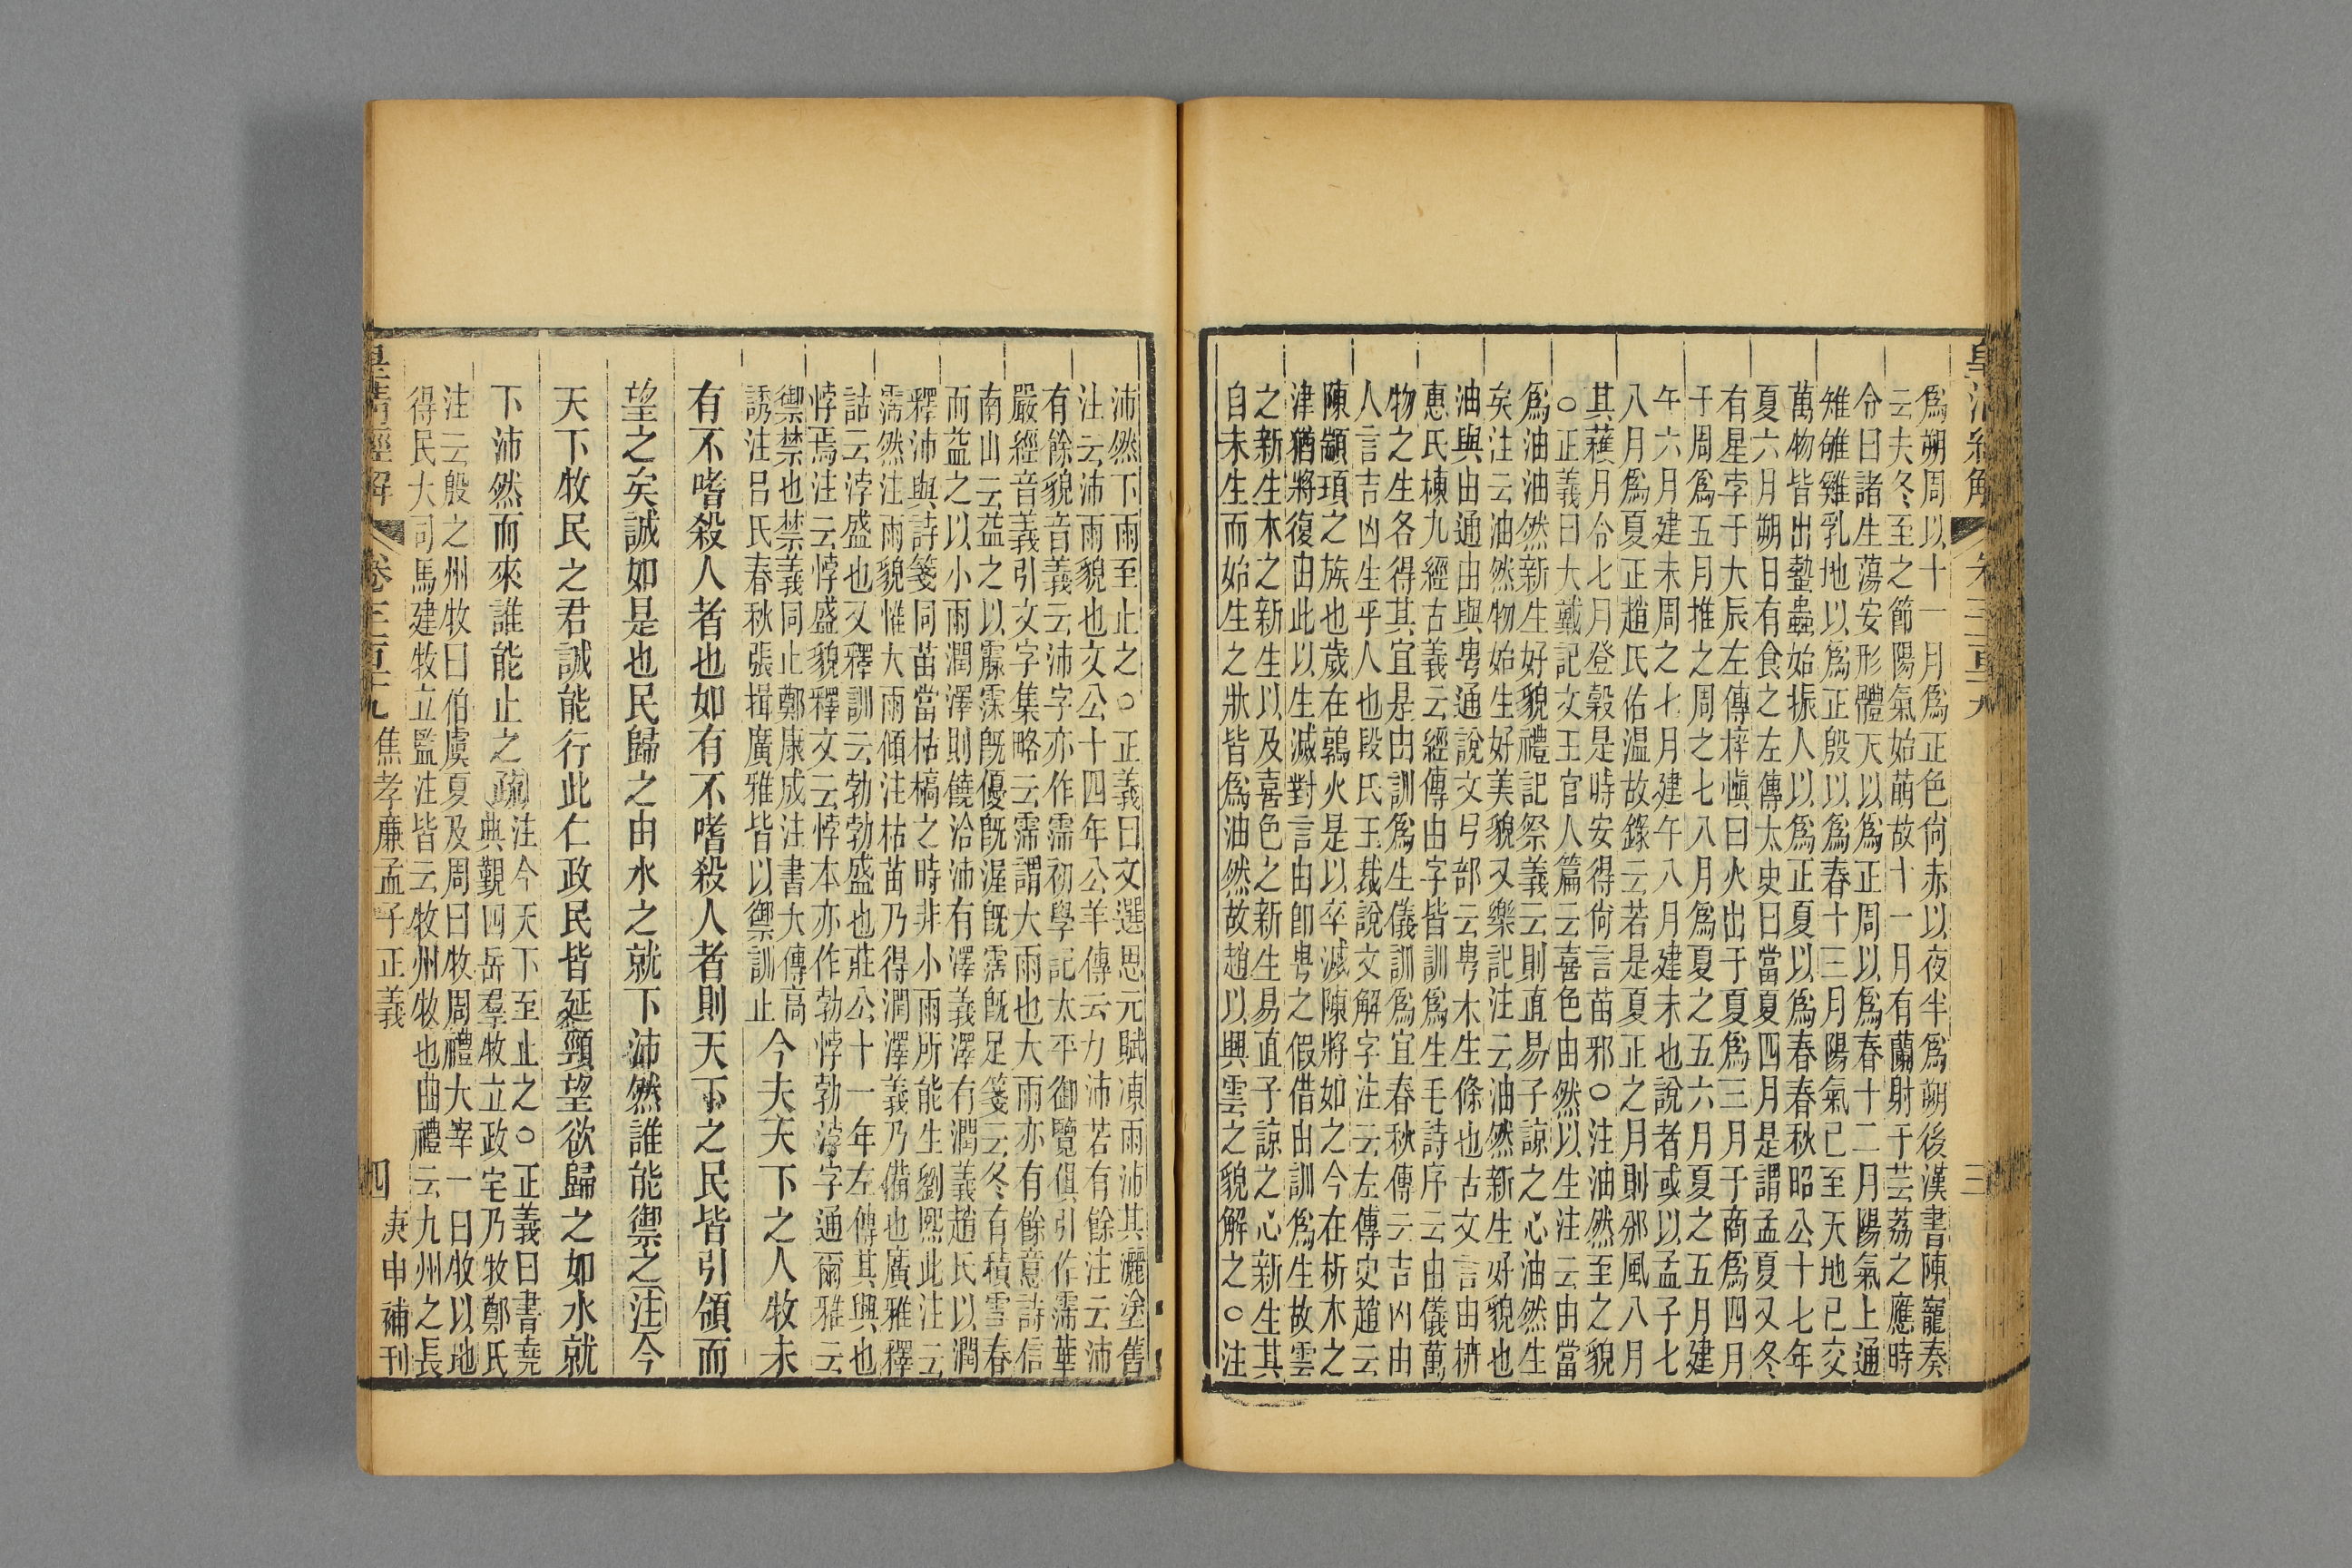 爲朔周以十一月爲正色尙赤以夜半爲朔後漢書陳寵奏
云夫冬至之節陽氣始萌故十一月有蘭射干芸荔之應時
令曰諸生蕩安形體天以爲正周以爲春十二月陽氣上通
雉雊雞乳地以爲正殷以爲春十三月陽氣已至天地已交
萬物皆出蟄蟲始振人以爲正夏以爲春春秋昭公十七年
夏六月朔日有食之左傳太史曰當夏四月是謂孟夏又冬
有星孛于大辰左傳梓愼曰火出于夏爲三月于商爲四月
于周爲五月推之周之七八月爲夏之五六月夏之五月建
午六月建未周之七月建午八月建未也說者或以孟子七
八月爲夏正趙氏佑温故錄云若是夏正之月則邠風八月
其穫月令七月登穀是時安得尙言苗邪○注油然至之貌
○正義曰大戴記文王官人篇云喜色由然以生注云由當
爲油油然新生好貌禮記祭義云則直易子諒之心油然生
矣注云油然物始生好美貌又樂記注云油然新生好貌也
油與由通由與甹通說文𢎘部云甹木生條也古文言由枿
惠氏棟九經古義云經傳由字皆訓爲生毛詩序云由儀萬
物之生各得其宜是由訓爲生儀訓爲宜春秋傳云吉凶由
人言吉凶生乎人也段氏玉裁說文解字注云左傳史趙云
陳顓頊之族也歲在鶉火是以卒滅陳將如之今在析木之
津猶將復由此以生滅對言由卽甹之假借由訓爲生故雲
之新生木之新生以及喜色之新生易直子諒之心新生其
自未生而始生之狀皆爲油然故趙以興雲之貌解之○注
沛然下雨至止之○正義曰文選思元賦凍雨沛其灑塗舊
注云沛雨貌也文公十四年公羊傳云力沛若有餘注云沛
有餘貌音義云沛字亦作霈初學記太平御覽俱引作霈華
嚴經音義引文字集略云霈謂大雨也大雨亦有餘意詩信
南山云益之以霡霂旣優旣渥旣霑旣足箋云冬有積雪春
而益之以小雨潤澤則饒洽沛有澤義澤有潤義趙氏以潤
釋沛與詩箋同苗當枯槁之時非小雨所能生劉熙此注云
霈然注雨貌惟大雨傾注枯苗乃得潤澤義乃備也廣雅釋
詁云浡盛也又釋訓云勃勃盛也莊公十一年左傳其興也
悖焉注云悖盛貌釋文云悖本亦作勃悖勃浡字通爾雅云
禦禁也禁義同止鄭康成注書大傳高
誘注呂氏春秋張揖廣雅皆以禦訓止
今夫天下之人牧未
有不嗜殺人者也如有不嗜殺人者則天下之民皆引領而
望之矣誠如是也民歸之由水之就下沛然誰能禦之注今
天下牧民之君誠能行此仁政民皆延頸望欲歸之如水就
下沛然而來誰能止之疏
注今天下至止之○正義曰書堯
典覲四岳羣牧立政宅乃牧鄭氏
注云殷之州牧曰伯虞夏及周曰牧周禮大宰一曰牧以地
得民大司馬建牧立監注皆云牧州牧也曲禮云九州之長
皇清經解 卷千百十九 焦孝廉孟子正義 四 庚申補刊